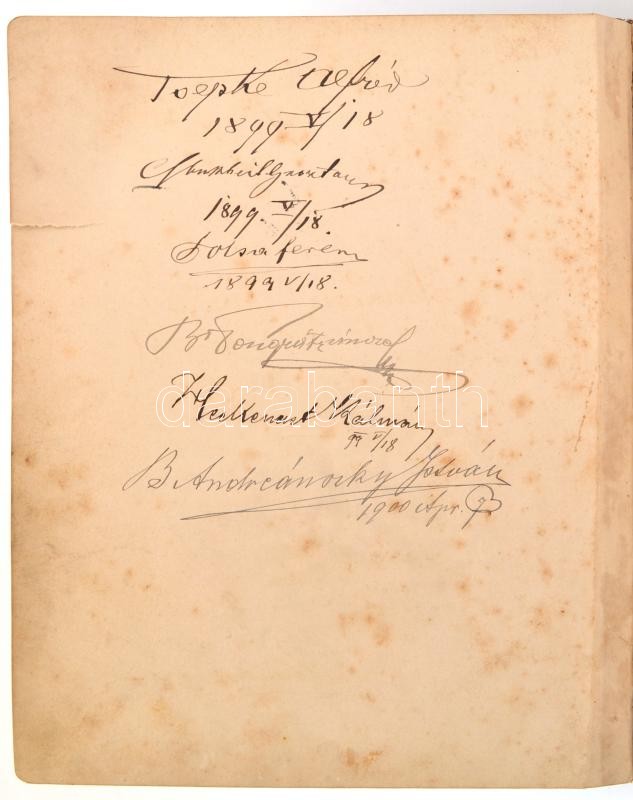 Toepke Alfréd
1899 V/18
Gusztáv
1899. V/18.
Dolsa Ferenc
1899 V/18.
Br
darabanth
Heckenast Kálmán
99 V/18
B Andreánszky István
1900 Apr. 7